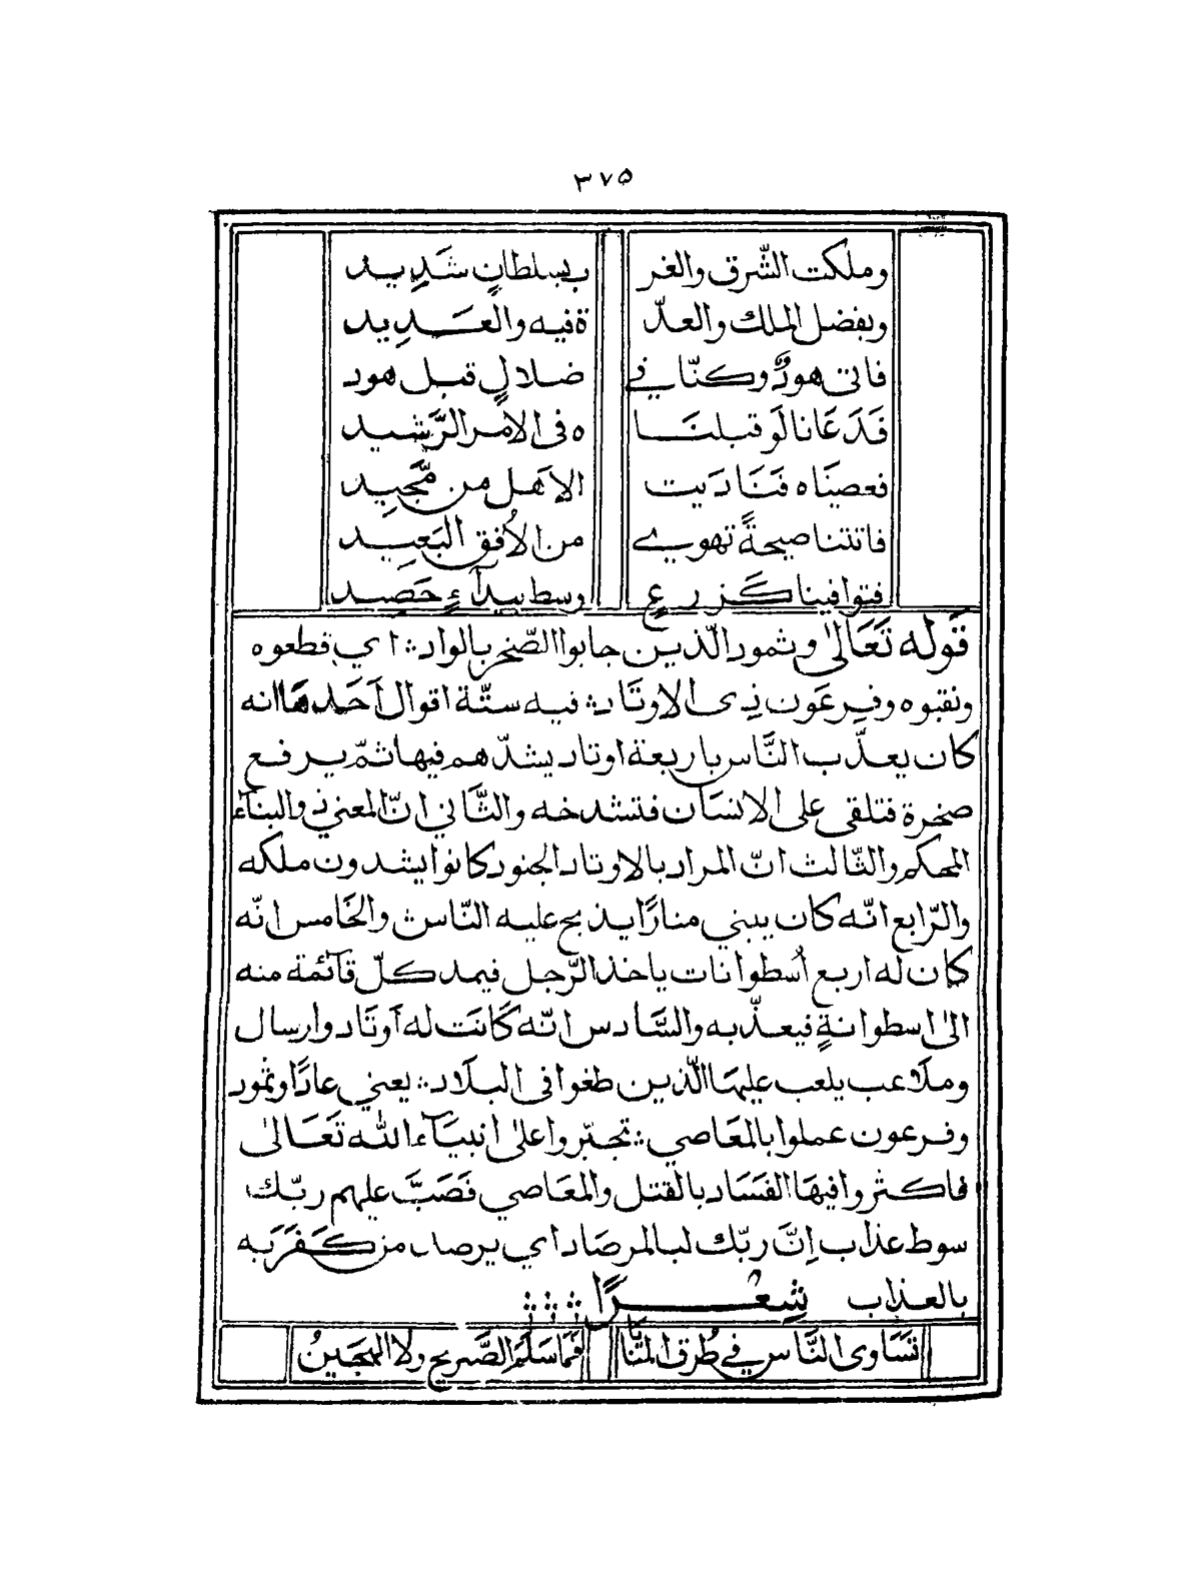 ٣٧٥
وملكت الشّرق والغر بسلطانٍ شَدِيد
وبفضل الملك والعدّ ةفيه والعَدِيد
فاتى هودٌ وكنّا في ضلالٍ قبل هود
فَدَعَانا لَو قبلنَا ه فى الامر الرَّشيد
فعصيَناه فَنَادَيت الاهَل من مَّحِيد
فاتتنا صيحةً تهوي من الاُفق البَعِيد
فتوافينا كَزرعٍ وسط بيدآءٍ حَصِيد
قَوله تَعَالىٰ وثمود الّذين جابوا الصّخر بالواد؛ اي قطعوه
ونقبوه وفِرعَون ذِى الاوتَاد؛ فيه ستّة اقوال اَحَدهَا انه
كان يعذّب النَّاس باربعة اوتاد يشدّهم فيها ثمّ يرفع
صخرة فتلقى على الانسَان فتشدخه والثَّاني انّ المعنى ذوالبنآء
المحكم والثّالث انّ المراد بالاوتاد الجنود كانوا يشدون ملكه
والرّابع انّه كان يبني منارًا يذبح عليه النّاس والخَامس انّه
كان له اربع اُسطوانات ياخذ الرّجل فيمد كلّ قآئمة منه
الىٰ اسطوانةٍ فيعذّبه والسَّادس انّه كَانَت له اَوتَاد وارسال
وملَاعب يلعب عليهَا الّذين طغوا فى البلَاد؛ يعني عادًا وثمود
وفرعون عملوا بالمعَاصي؛ تجبّروا علىٰ انبيَآء اللّه تَعَالىٰ
فاكثروا فيهَا الفَسَاد بالقتل والمعَاصي فَصَبَّ عليهم ربّك
سوط عذاب اِنَّ ربّك لبالمرصَاد اي يرصد من كَفَرَ به
بالعذاب شِعْرًا
تَسَاوى النَّاس في طُرق المنَايَا فَمَا سَلَم الصَّريح ولَا الهَجِينُ